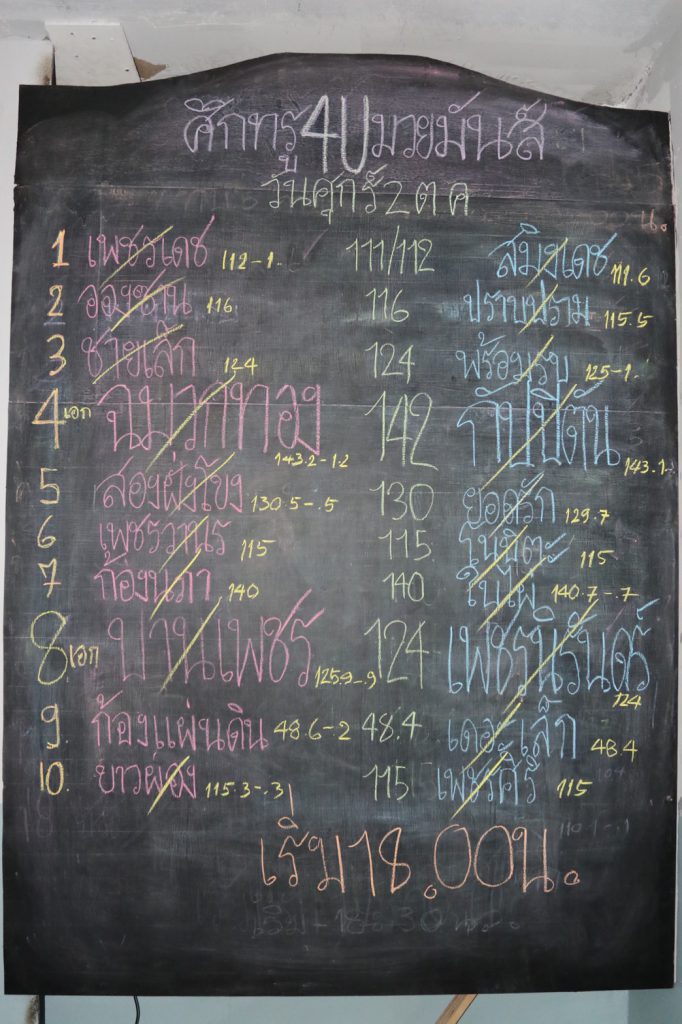 ศึกทรู4Uมวยมันส์
วันศุกร์2 ต ค
1 เพชรเดช 112-1. 111/112 สมิงเดช 111.6
2 อองซาน 116 116 ปราบปราม 115.5
3 ชายเล็ก 124 124 พร้อมรบ 125-1.
4 เอก ฉมวกทอง 143.2-1.2 142 กัปปิตัน 143.1-
5 สองฝั่งโขง 130.5-.5 130 ยอดรัก 129.7
6 เพชรวานร 115 115 115
7 ก้องนภา 140 140 ใบไผ่ 140.7-.7
8 เอก ปานเพชร 125.9-.9 124 เพชรนิรันดร์ 124
9. ก้องแผ่นดิน 48.6-2 48.4 เดอะเล็ก 48.4
10. ยาวผอง 115.3-.3 115 เพชรคีรี 115
เริ่ม18.00น.